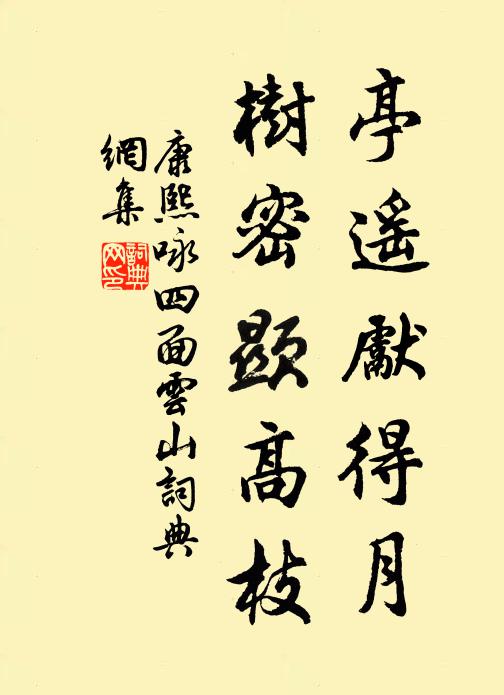 亭遥獻得月
樹密顯高枝
康熙咏四面雲山詞典
網集
詞典
网印